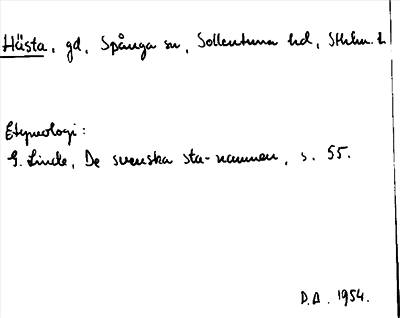 Hästa, gd, Spånga sn, Sollentuna hd, Sthlm. l.
Etymologi:
G. Linde, De svenska sta-namnen, s. 55.
D.A. 1954.